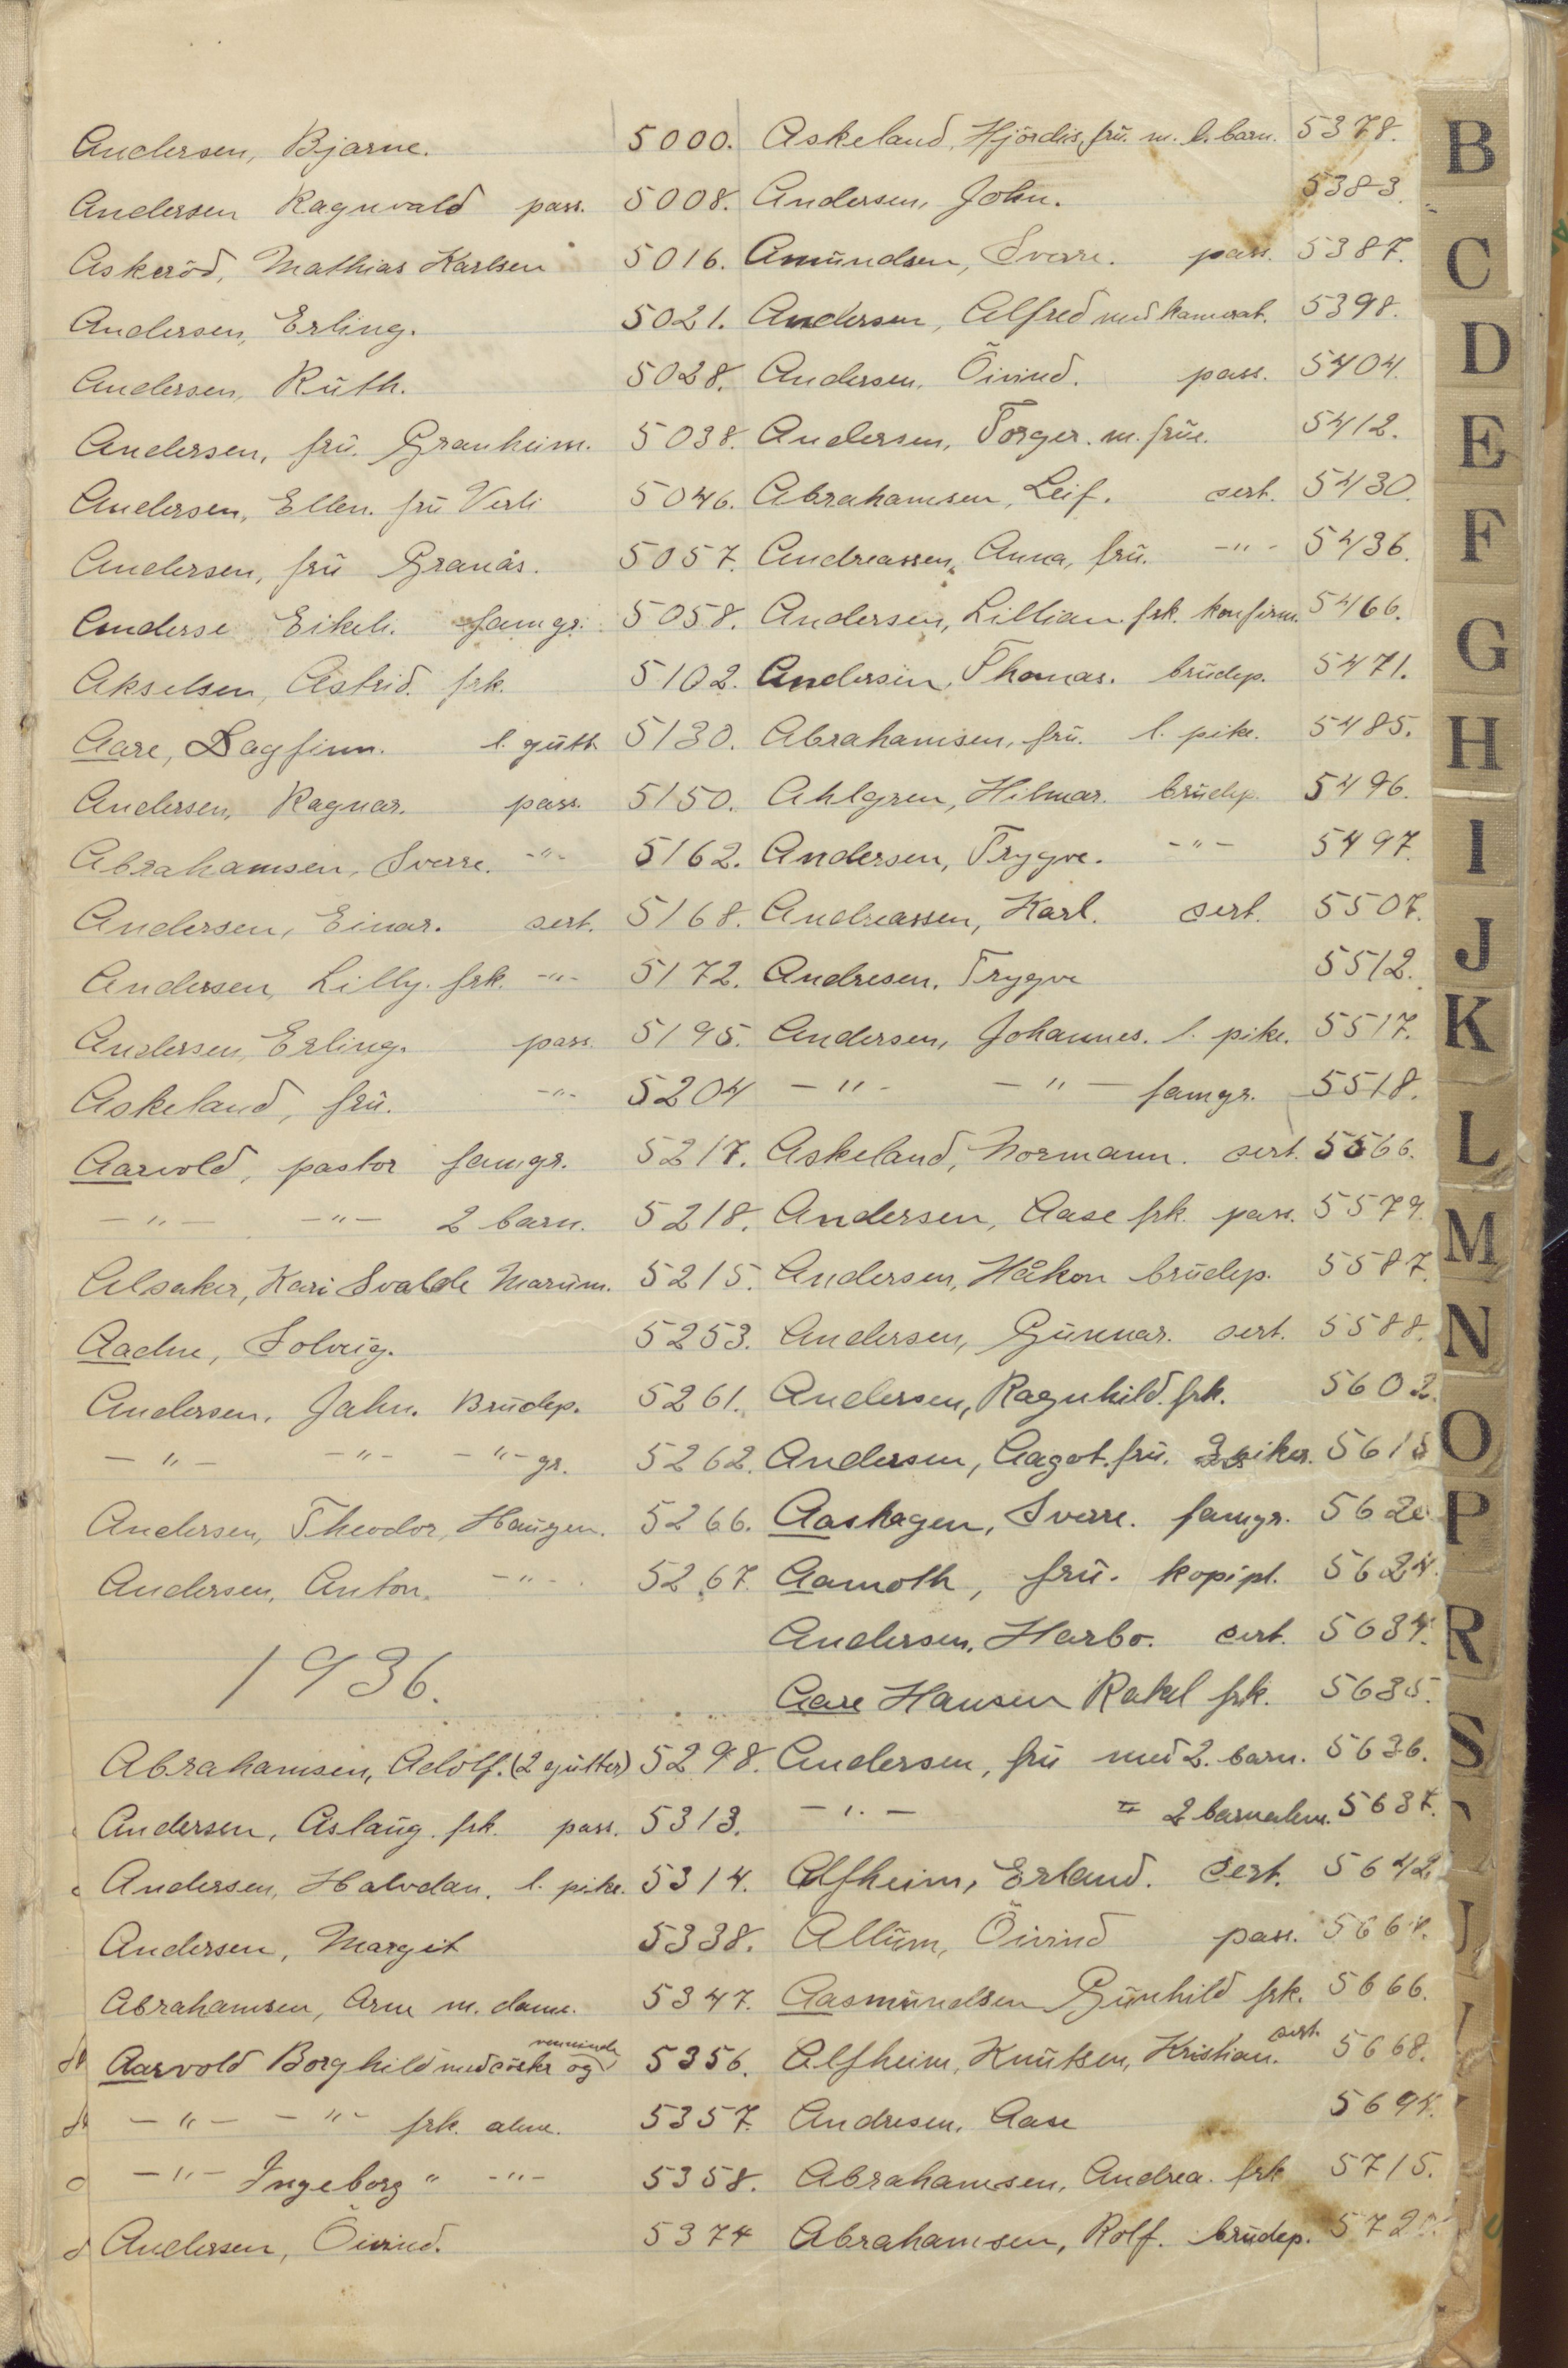 Andersen, Bjarne. 5000.
Andersen Ragnvald pass. 5008.
Askeröd, Mathias Karlsen 5016.
Andersen, Erling. 5021.
Andersen, Rŭth. 5028.
Andersen, frŭ. Granheim. 5038.
Andersen, Ellen. frŭ Verli 5046.
Andersen, frŭ Granås. 5057.
Anderse Eikeli. famgr. 5058.
Akselsen, Astrid. frk. 5102.
Aare, Dagfinn. l. gŭtt 5130.
Andersen, Ragnar. pass. 5150.
Abrahamsen, Sverre. -"- 5162.
Andersen, Einar. sert. 5168.
Andersen, Lilly. frk. -"- 5172.
Andersen, Erling. pass. 5195.
Askeland, frŭ. -"- 5204
Aarvold, pastor famgr. 5217.
-"- -"- 2 barn. 5218.
Alsaker, Kari Svalde Marŭm. 5215.
Aadne, Solveig. 5253.
Andersen, Jahn. Brŭdep. 5261.
-"- -"- -"- gr. 5262.
Andersen, Theodor, Haŭgen. 5266.
Andersen, Anton. -"- 5267.
1936.
Abrahamsen, Adolf. (2 gŭtter) 5298.
Andersen, Aslaŭg. frk. pass. 5313.
Andersen, Halvdan. l. pike. 5314.
Andersen, Margit 5338.
Abrahamsen, Arne m. dame. 5347.
Aarvold Borghild med söstr og veninde 5356.
-"- -"- frk. alene. 5357.
-"- Ingeborg " -"- 5358.
Andersen, Öivind. 5374
Askeland, Hjördis, frŭ. m. l. barn. 5378.
Andersen, John. 5383.
Amŭndsen, Sverre. pass. 5387.
Andersen, Alfred med kamerat. 5398.
Andersen, Öivind. pass. 5404.
Andersen, Torger. m. frŭe. 5412.
Abrahamsen, Leif. sert. 5430.
Andreassen, Anna, frŭ. -"- 5436.
Andersen, Lillian. frk. konfirm. 5466.
Andersen, Thomas. brŭdep. 5471.
Abrahamsen, frŭ. l. pike. 5485.
Ahlgren, Hilmar. brŭdep. 5496.
Andersen, Trygve. -"- 5497.
Andreassen, Karl. sert. 5507.
Andresen, Trygve 5512.
Andersen, Johannes. l. pike. 5517.
-"- -"- famgr. 5518.
Askeland, Normann. sert. 5566.
Andersen, Aase frk. pass. 5579.
Andersen, Håkon brŭdep. 5587.
Andersen, Gŭnnar. sert. 5588.
Andersen, Ragnhild. frk. 5602.
Andersen, Aagot. frŭ. 2 piker. 5615
Aashagen, Sverre. famgr. 562
Aamoth, frŭ. kopipl. 5624.
Andersen, Harbo. sert. 5634.
Aare Hansen Rakel frk. 5635.
Andersen, frŭ med 2. barn. 5636.
-"- = 2 barn alene. 5637.
Alfheim, Erland. sert. 5642
Allŭm, Öivind pass. 5664.
Aasmŭndsen Gŭnhild frk. 5666.
Alfheim, Knŭtsen, Kristian. sert. 5668.
Andresen, Aase 5694.
Abrahamsen, Andrea. frk 5715.
Abrahamsen, Rolf. brŭdep. 572
B
C
D
E
F
G
H
I
J
K
L
M
N
O
P
R
S